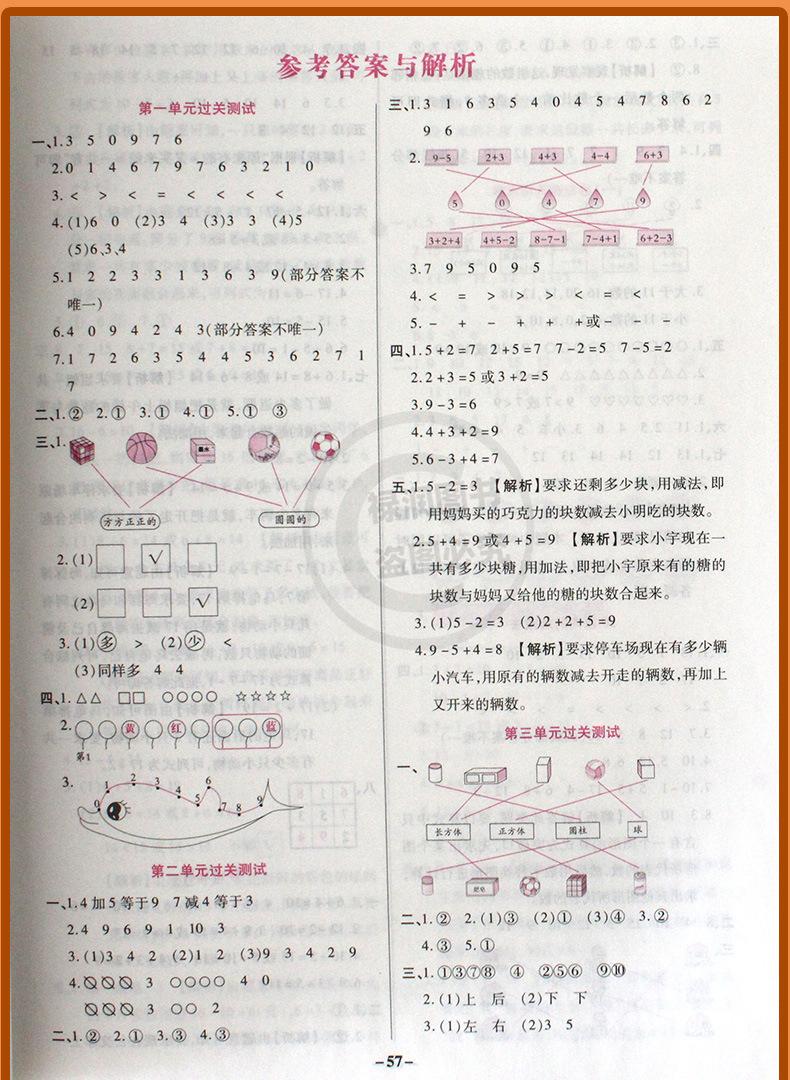 参考答案与解析
第一单元过关测试
一、1.3 5 0 9 7 6
2.0 1 4 6 7 9 7 6 3 2 1 0
3.< > < = < < < <
4.(1)6 0 (2)3 4 (3)3 3 (4)5
(5)6、3、4
5.1 2 2 3 3 1 3 6 3 9(部分答案不
唯一)
6.4 0 9 4 2 4 3(部分答案不唯一)
7.1 7 2 6 3 5 4 4 5 3 6 2 7 1
7
二、1.② 2.① 3.① 4.① 5.① ③
三、1.
墨水
方方正正的 圆圆的
2.(1) √
(2) √
3.(1)多 > (2)少 <
(3)同样多 4 4
四、1.△△ □□ ○○○○ ☆☆☆☆
2. 黄 红 蓝
第1
3.
0 1 2 3 4 5 6 7 8 9
第二单元过关测试
一、1.4加5等于9 7减4等于3
2.4 9 6 9 1 10 3
3.(1)3 4 2 (2)1 2 (3)9 3 4 2 9
4.⊘⊘⊘ 3 ○○○○ 4 0
⊘⊘⊘ 3 ○○ 2
二、1.② 2.① 3.③ 4.③
三、1.3 1 6 3 5 4 0 4 5 4 7 8 6 2
9 6
2. 9-5 2+3 4+3 4-4 6+3
5 0 4 7 9
3+2+4 4+5-2 8-7-1 7-4+1 6+2-3
3.7 9 5 0 9 5
4.< = > > < = = <
5.- + - + + +或- - -
四、1.5+2=7 2+5=7 7-2=5 7-5=2
2.2+3=5或3+2=5
3.9-3=6
4.4+3+2=9
5.6-3+4=7
五、1.5-2=3 【解析】要求还剩多少块,用减法,即
用妈妈买的巧克力的块数减去小明吃的块数。
2.5+4=9或4+5=9 【解析】要求小宇现在一
共有多少块糖,用加法,即把小宇原来有的糖的
块数与妈妈又给他的糖的块数合起来。
3.(1)5-2=3 (2)2+2+5=9
4.9-5+4=8 【解析】要求停车场现在有多少辆
小汽车,用原有的辆数减去开走的辆数,再加上
又开来的辆数。
第三单元过关测试
一、
长方体 正方体 圆柱 球
肥皂
二、1.② 2.(1)③ (2)① (3)④ 3.②
4.③ 5.①
三、1.①③⑦⑧ ④ ②⑤⑥ ⑨⑩
2.(1)上 后 (2)下 下
3.(1)左 右 (2)3 5
-57-
禄润图书
盗图必究